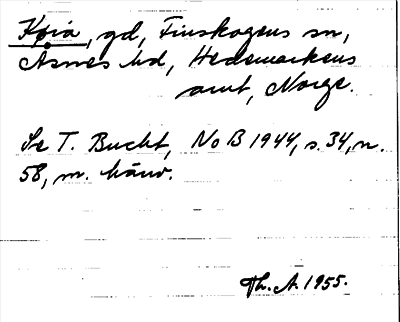 Køia, gd, Finskogens sn,
Åsnes hd, Hedemarkens
amt, Norge.
Se T. Bucht, NoB 1944, s. 34, n.
58, m. hänv.
Th. A. 1955.